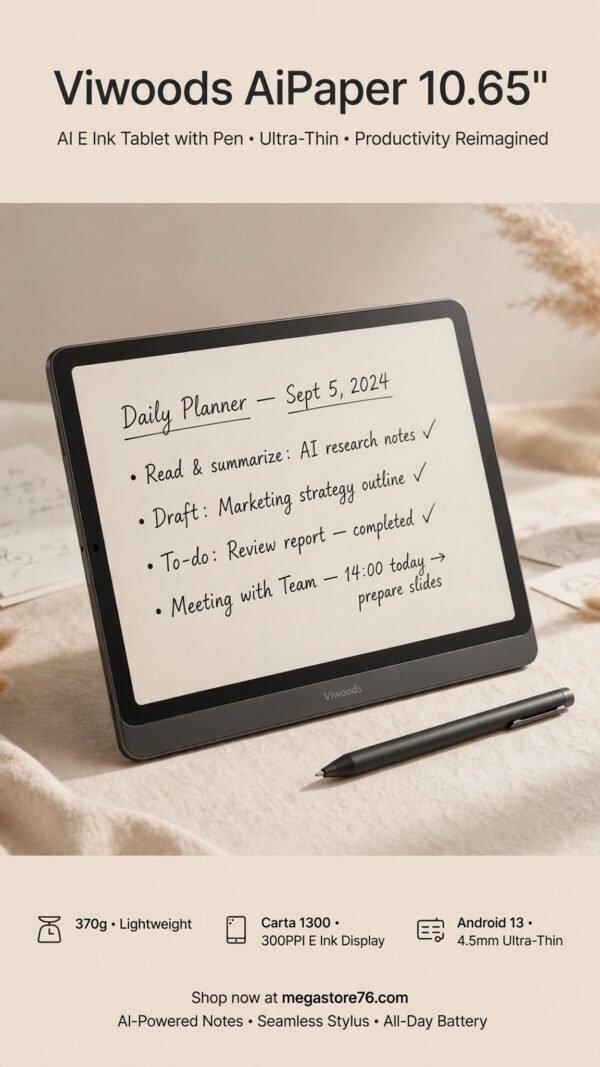 Viwoods AiPaper 10.65"
AI E Ink Tablet with Pen • Ultra-Thin • Productivity Reimagined
Daily Planner — Sept 5, 2024
• Read & summarize: AI research notes ✓
• Draft: Marketing strategy outline ✓
• To-do: Review report — completed ✓
• Meeting with Team — 14:00 today →
prepare slides
Viwoods
370g • Lightweight
Carta 1300 •
300PPI E Ink Display
Android 13 •
4.5mm Ultra-Thin
Shop now at megastore76.com
AI-Powered Notes • Seamless Stylus • All-Day Battery